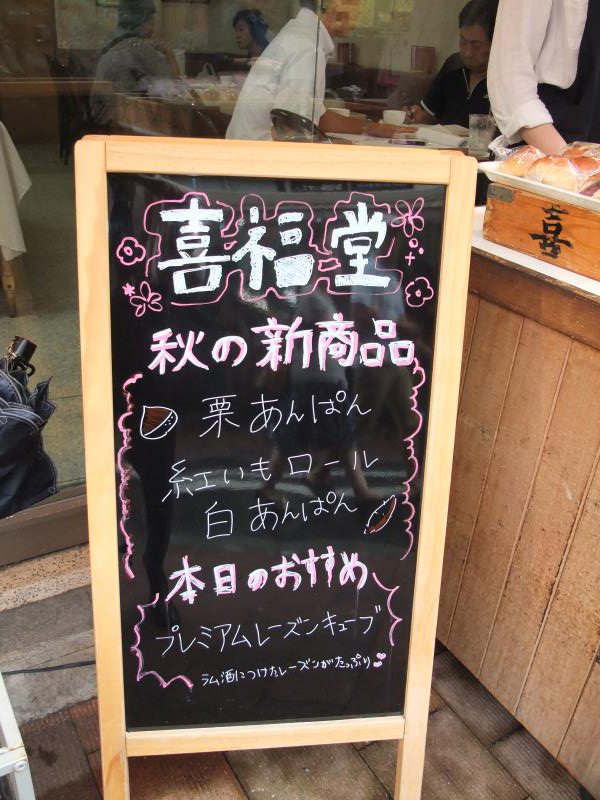 喜福堂
秋の新商品
栗あんぱん
紅いもロール
白あんぱん
本日のおすすめ
プレミアムレーズンキューブ
ラム酒につけたレーズンがたっぷり
喜